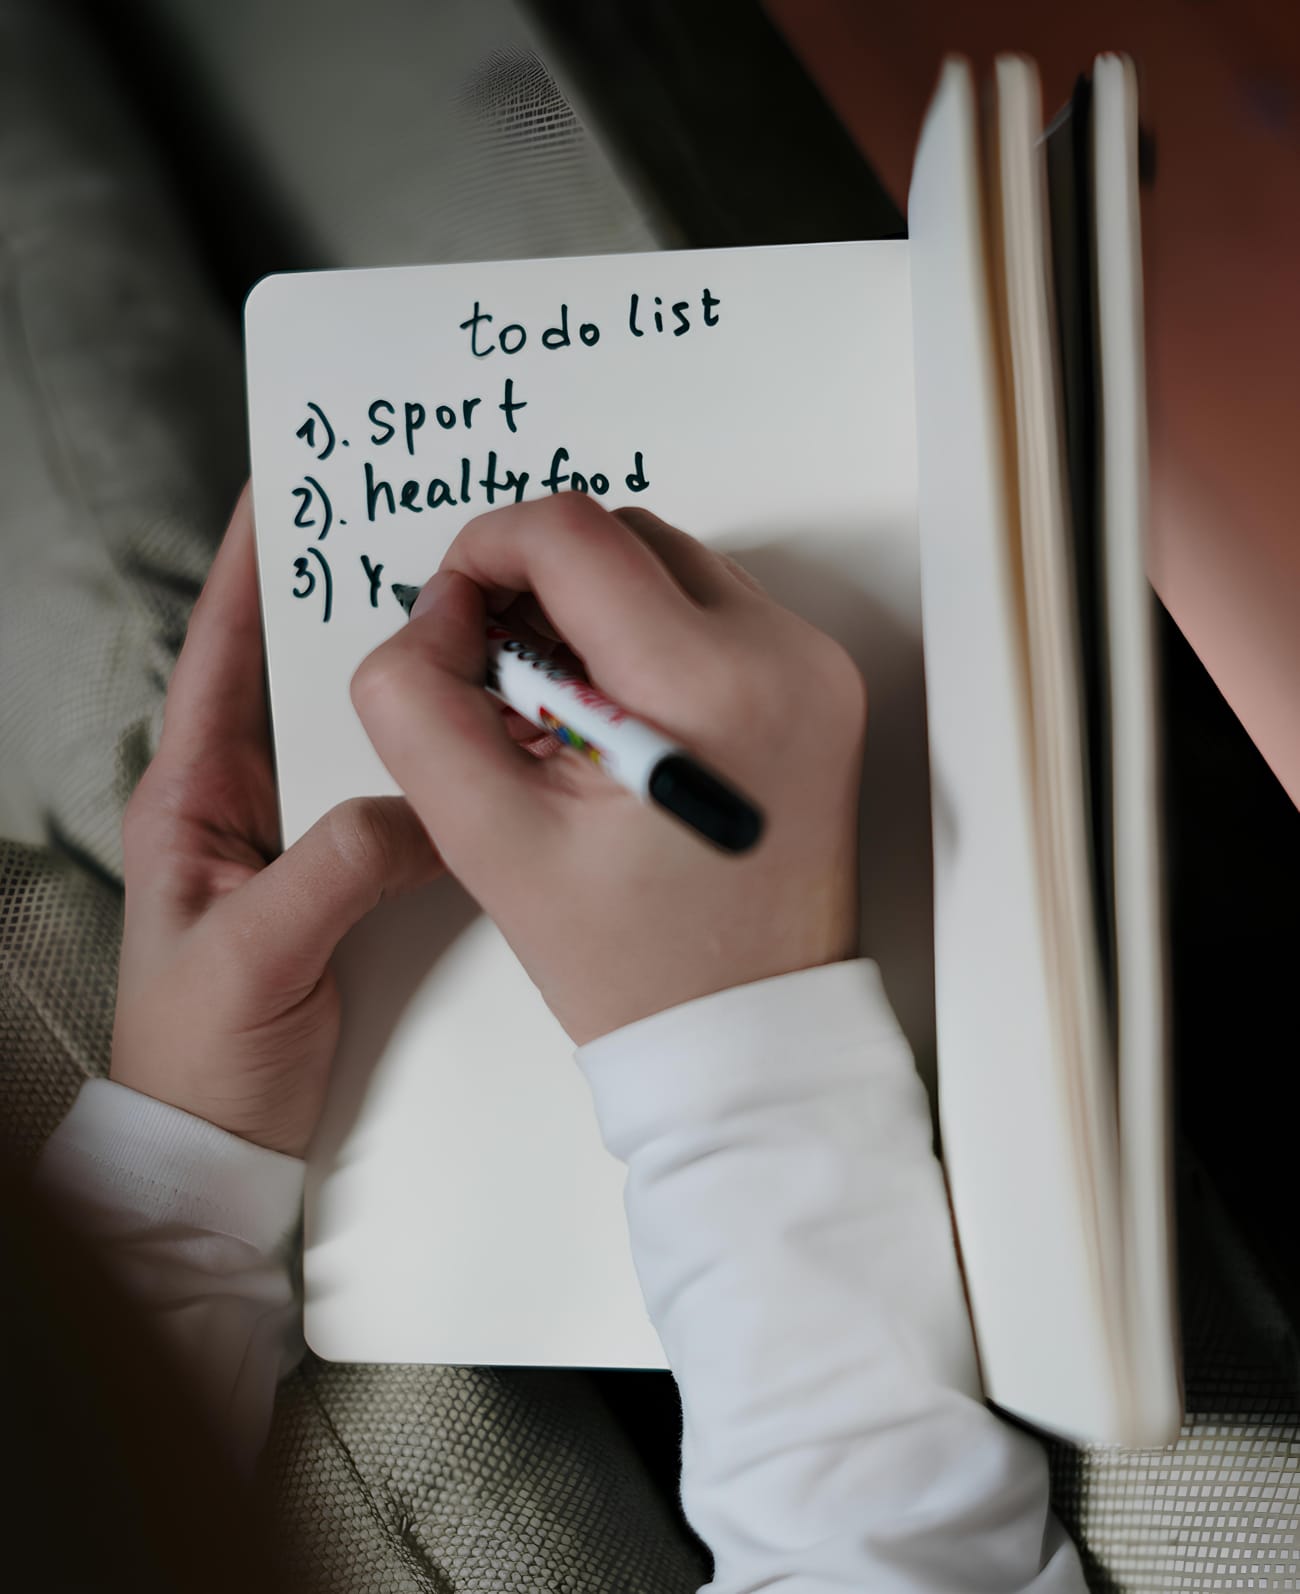 to do list
1). sport
2). healty food
3) Y